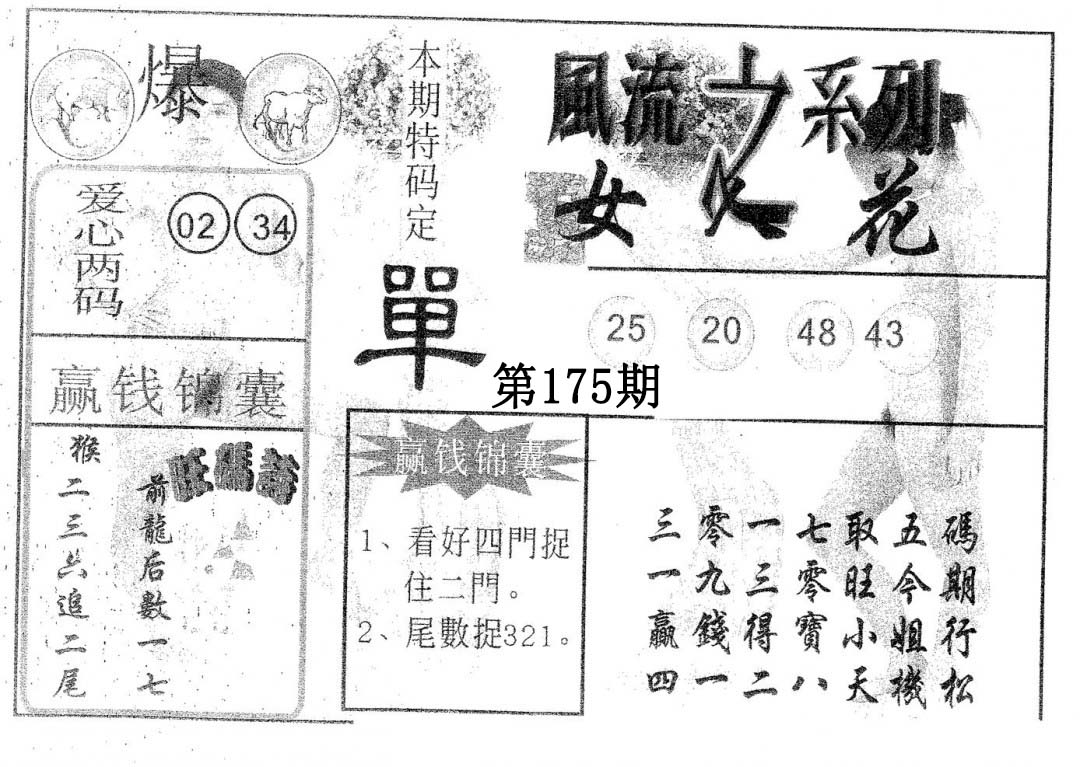 爆
本期特码定
單
風流之系列
女人花
爱心两码
02 34
25 20 48 43
第175期
赢钱锦囊
猴二三六追二尾
前龍后數一七
赢钱锦囊
1、看好四門捉
住二門。
2、尾數捉321。
三零一七取五碼
一九三零旺今期
贏錢得寶小姐行
四一二八天機松